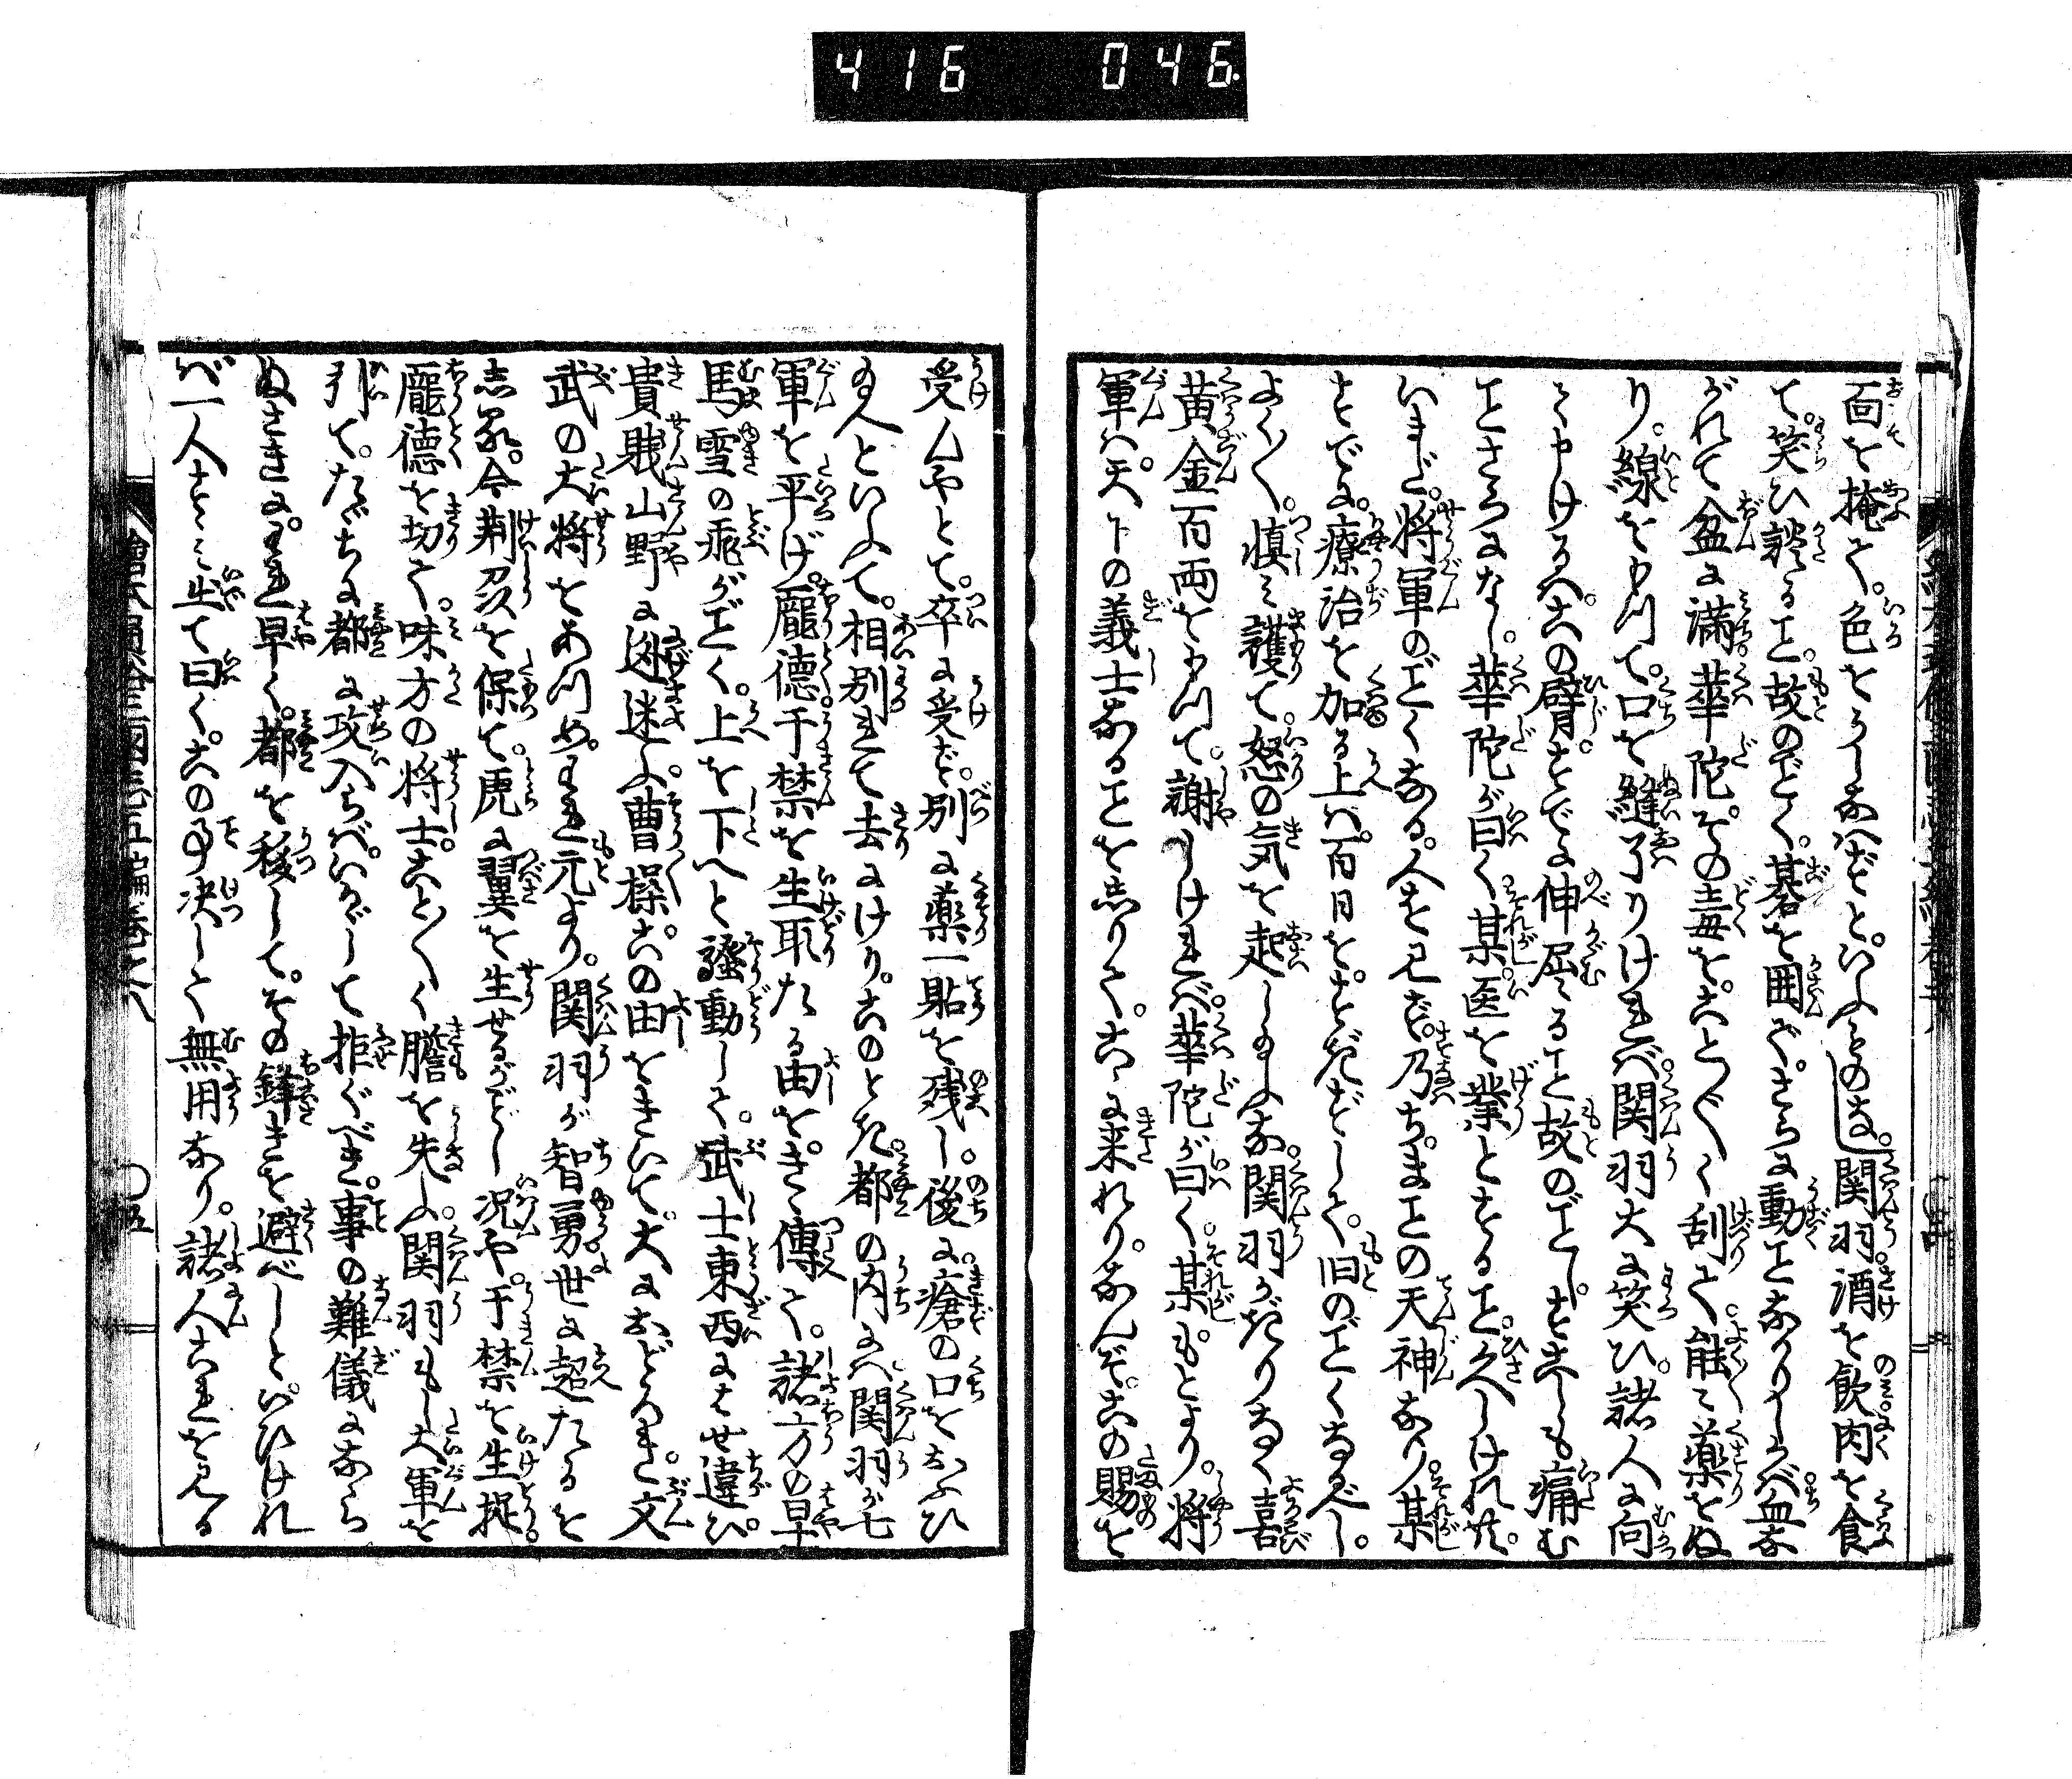 416 046
面を掩て。色をうしなはずといふものなし関羽。酒を飲肉を食
て。笑ひ談ること。故のごとく。碁を囲で。さらに動ことなかりしかば血な
がれて盆に満。華陀。その毒を。ことごとく刮て。能々薬をぬ
り。線をもつて。口を縫了りければ。関羽大に笑ひ。諸人に向
て申けるは。この臂。すでに伸屈ること故のごとし。すこしも痛む
ところになし。華陀が曰く某。医を業とすること。久しけれ共。
いまだ。将軍のごとくなる。人を見ず。乃ち。まことの天神なり。某
すでに。療治を加る上は。百日を。すぎずして。旧のごとくなるべし。
よくよく。慎み護て怒の気を起し玉ふな関羽かぎりなく喜
黄金一百両をもつて。謝しければ。華陀が曰く。某もとより。将
軍は。天下の義士なることをしりて。こゝに来れり。なんぞ。この賜を
受んやとて。卒に受ず。別に薬一貼を残し。後に。瘡の口をおふひ
玉へといふて。相別れて去にけり。このとき。都の内には関羽が七
軍を平げ。龐徳于禁を生取たる由を。きゝ傳て。諸方の早
馬雪の飛がごとく。上を下へと騒動して。武士東西にはせ違ひ。
貴賎山野に逃迷ふ。曹操。この由をきいて。大におどろき。文
武の大将をあつめ。われ元より。関羽が智勇。世に超たるを
しる。今荆襄を保て。虎に翼を生せるがごとし況や。于禁を生捉。
龐徳を切て。味方の将士。ことごとく膽を失ふ。関羽もし大軍を
引て。たゞちに都に攻入らば。いかゞして拒ぐべき。事の難儀になら
ぬさきに。われ早く。都を移して。その鋒きを避べしと。いひけれ
ば一人すゝみ出て曰く。この事決して無用なり。諸人これを見る